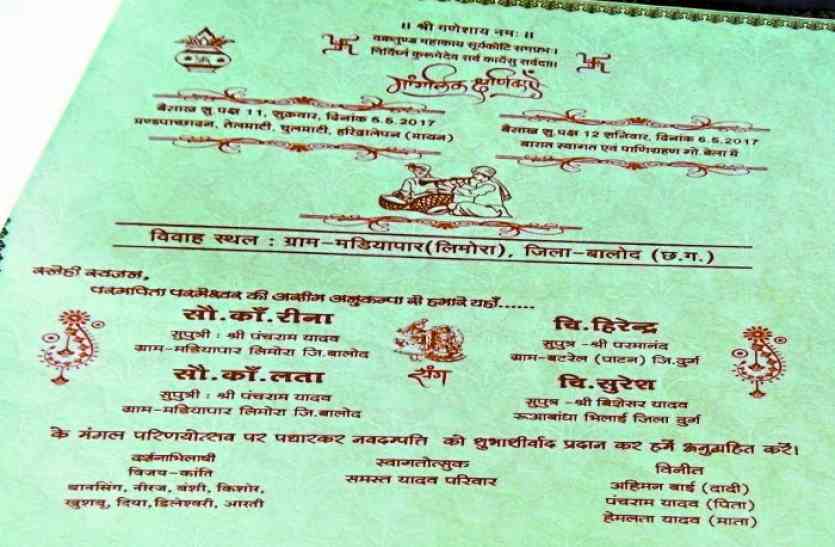 ॥ श्री गणेशाय नमः ॥
वक्रतुण्ड महाकाय सूर्यकोटि समप्रभः।
निर्विघ्नं कुरूमेदेव सर्व कार्येसु सर्वदा॥
मांगलिक क्षणिकाएँ
बैसाख सु.पक्ष 11, शुक्रवार, दिनांक 5.5.2017
मण्डपाच्छादन, तेलमाटी, चुलमाटी, हरिद्रालेपन (मायन)
बैसाख सु.पक्ष 12 शनिवार, दिनांक 6.5.2017
बारात स्वागत एवं पाणिग्रहण गो.बेला में
विवाह स्थल : ग्राम-मडियापार(लिमोरा), जिला-बालोद (छ.ग.)
स्नेही स्वजन,
परमपिता परमेश्वर की असीम अनुकम्पा से हमारे यहाँ......
सौ.काँ.रीना
सुपुत्री : श्री पंचराम यादव
ग्राम-मडियापार लिमोरा जि.बालोद
सौ.काँ.लता
सुपुत्री : श्री पंचराम यादव
ग्राम-मडियापार लिमोरा जि.बालोद
संग
चि.हिरेन्द्र
सुपुत्र -श्री परमानंद
ग्राम-बटरेल (पाटन) जि.दुर्ग
चि.सुरेश
सुपुत्र -श्री बिशेसर यादव
रूआबांधा भिलाई जिला दुर्ग
के मंगल परिणयोत्सव पर पधारकर नवदम्पति को शुभाशीर्वाद प्रदान कर हमें अनुग्रहित करें।
दर्शनाभिलाषी
विजय-कांति
दानसिंग, नीरज, बंशी, किशोर,
खुशबू, दिया, डिलेश्वरी, आरती
स्वागतोत्सुक
समस्त यादव परिवार
विनीत
अहिमन बाई (दादी)
पंचराम यादव (पिता)
हेमलता यादव (माता)